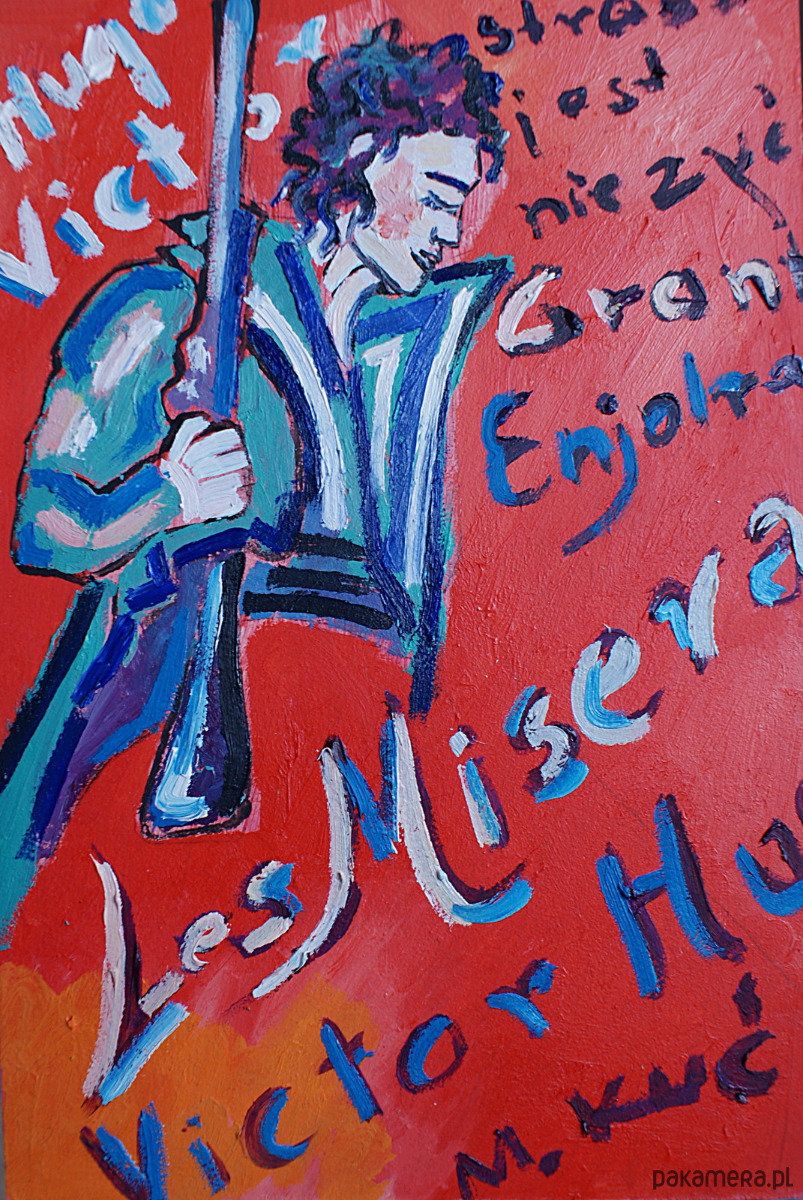 Hugo
Victor
jest
nie żyć
Grant
Enjolra
Les Misera
Victor Hu
M. Kuć
pakamera.pl